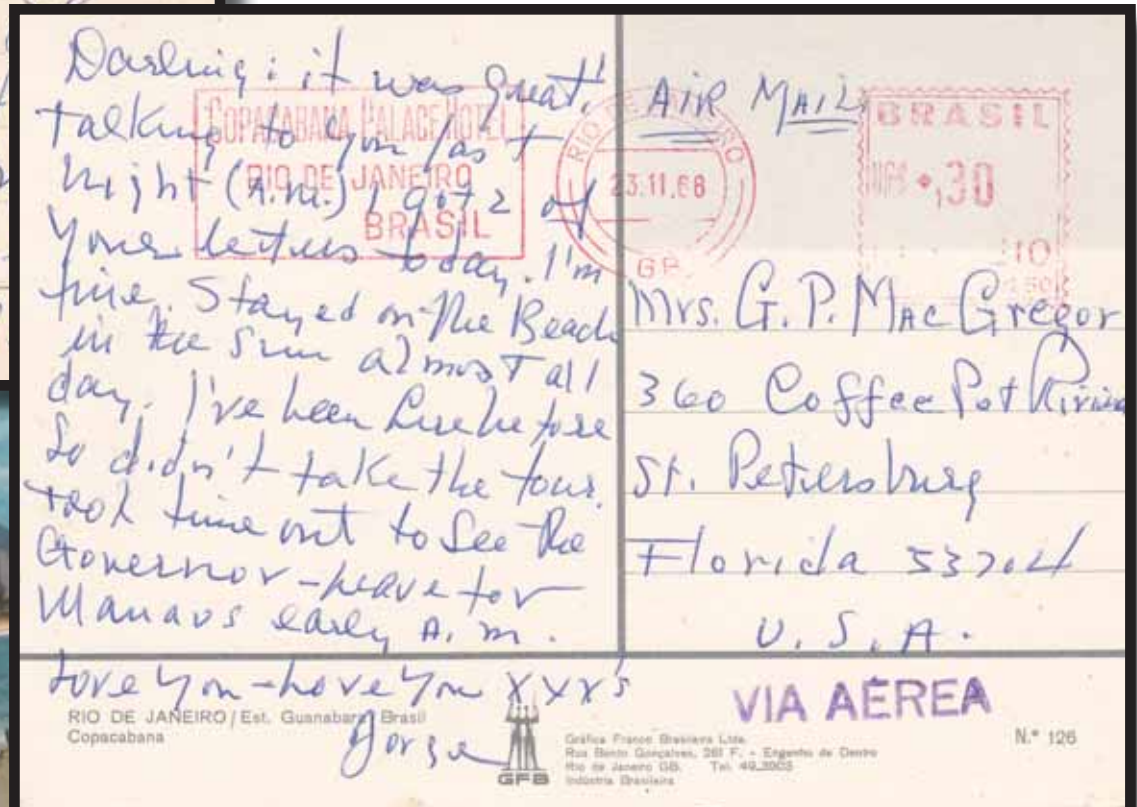 Darling: it was great
talking to you last
night (A.M.) I got 2 of
your letters today. I'm
fine. Stayed on the Beach
in the sun almost all
day. I've been here before
so didn't take the tour.
Took time out to see the
Governor - Leave for
Manaos early A.M.
Love you - Love you XXX's
COPACABANA PALACE HOTEL
RIO DE JANEIRO
BRASIL
RIO DE JANEIRO
23.11.68
GB.
AIR MAIL
BRASIL
,30
Mrs. G. P. MacGregor
360 Coffee Pot Riviera
St. Petersburg
Florida 33704
U.S.A.
VIA AÉREA
RIO DE JANEIRO / Est. Guanabara / Brasil
Copacabana
GFB
Gráfica Franco Brasileira Ltda.
Rua Bento Gonçalves, 261 F. - Engenho de Dentro
Rio de Janeiro GB. Tel. 49.3903
Indústria Brasileira
N.º 126